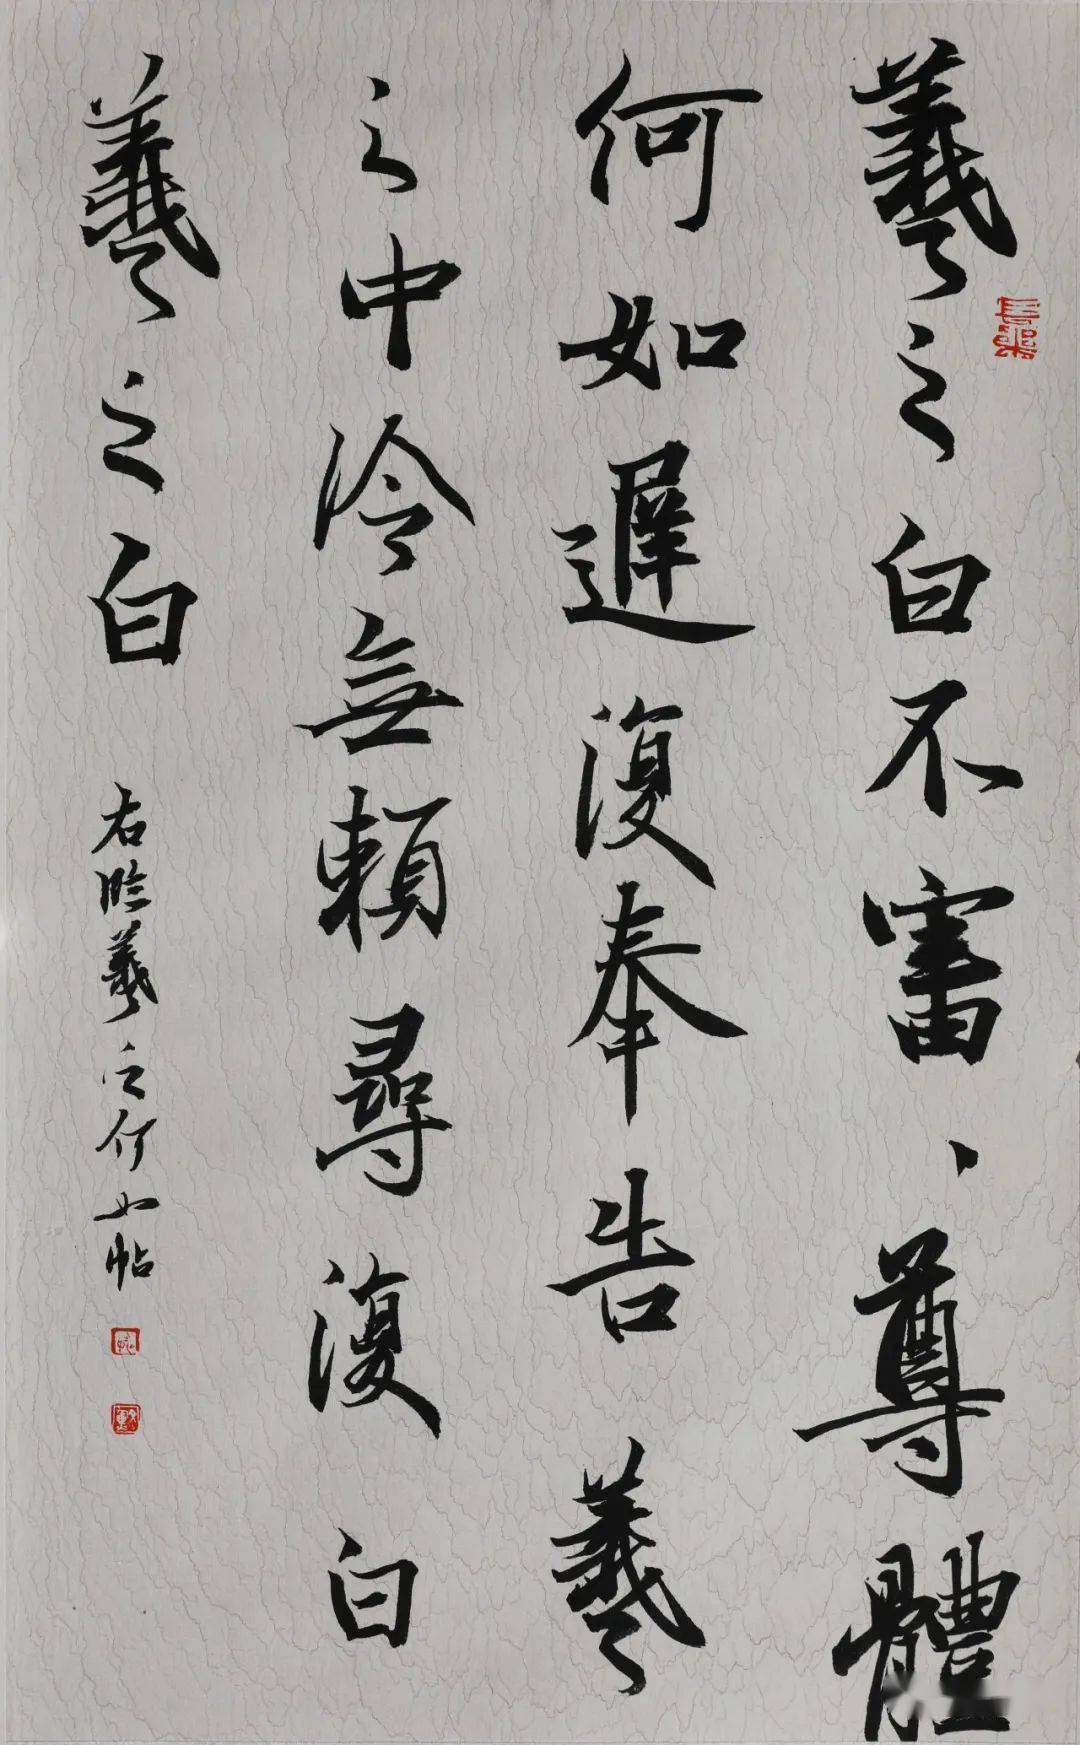 羲之白不審、尊體
何如遲復奉告羲
之中冷無賴尋復白
羲之白
右臨羲之何如帖